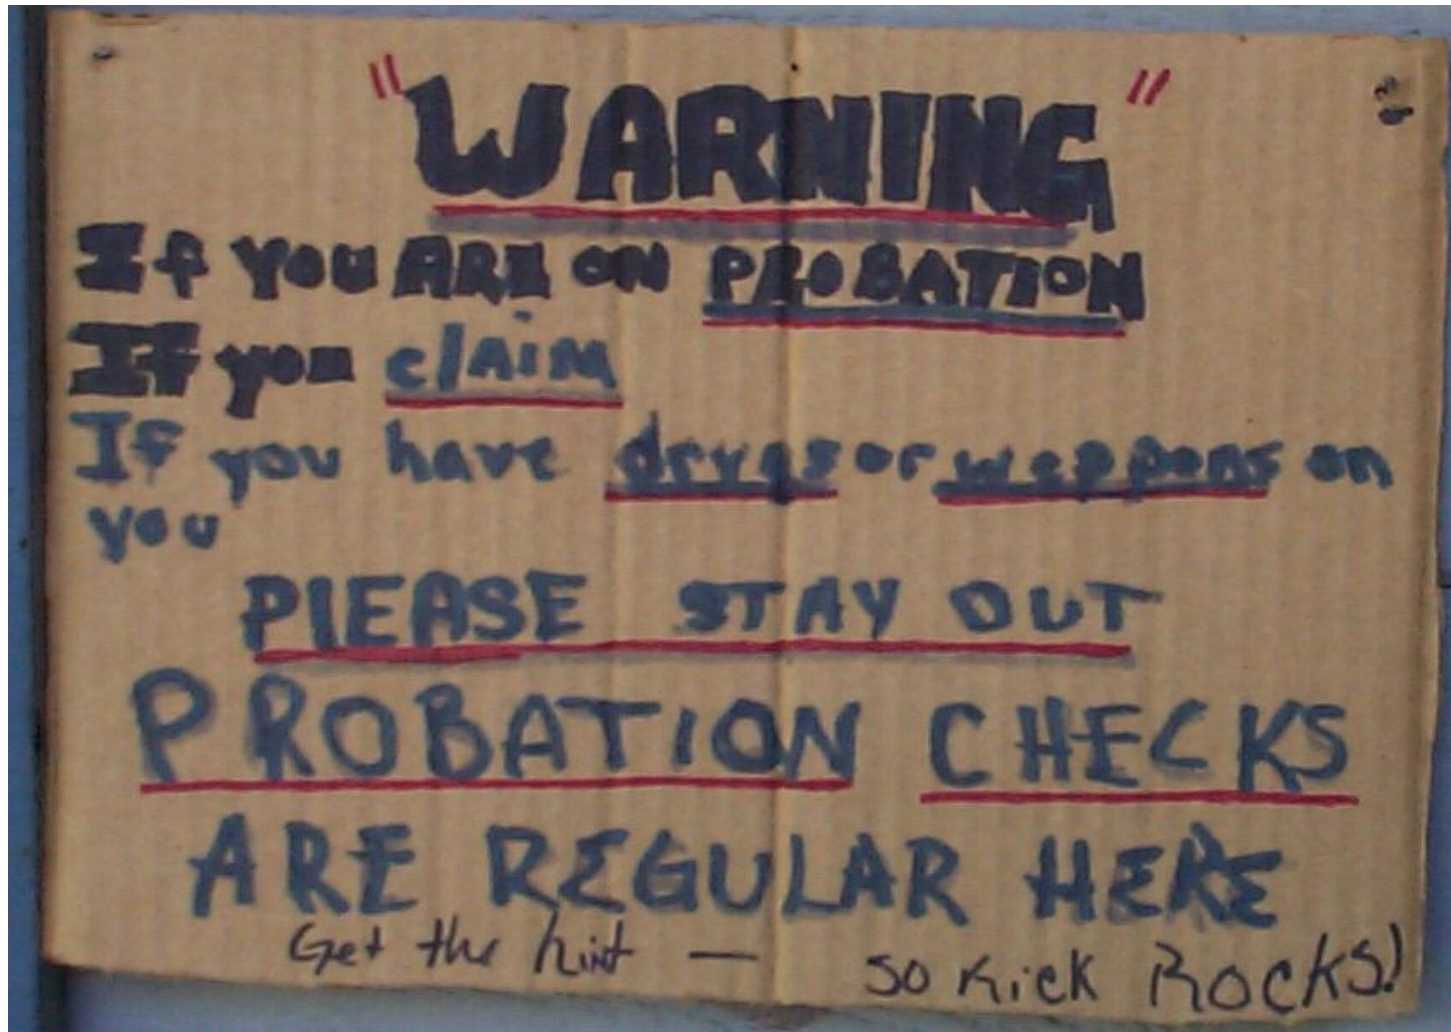 "WARNING"
If YOU ARE ON PROBATION
If you claim
If you have druges or weppons on
you
PlEASE STAY OUT
PROBATION CHECKS
ARE REGULAR HERE
Get the hint — so Kick ROCKS!